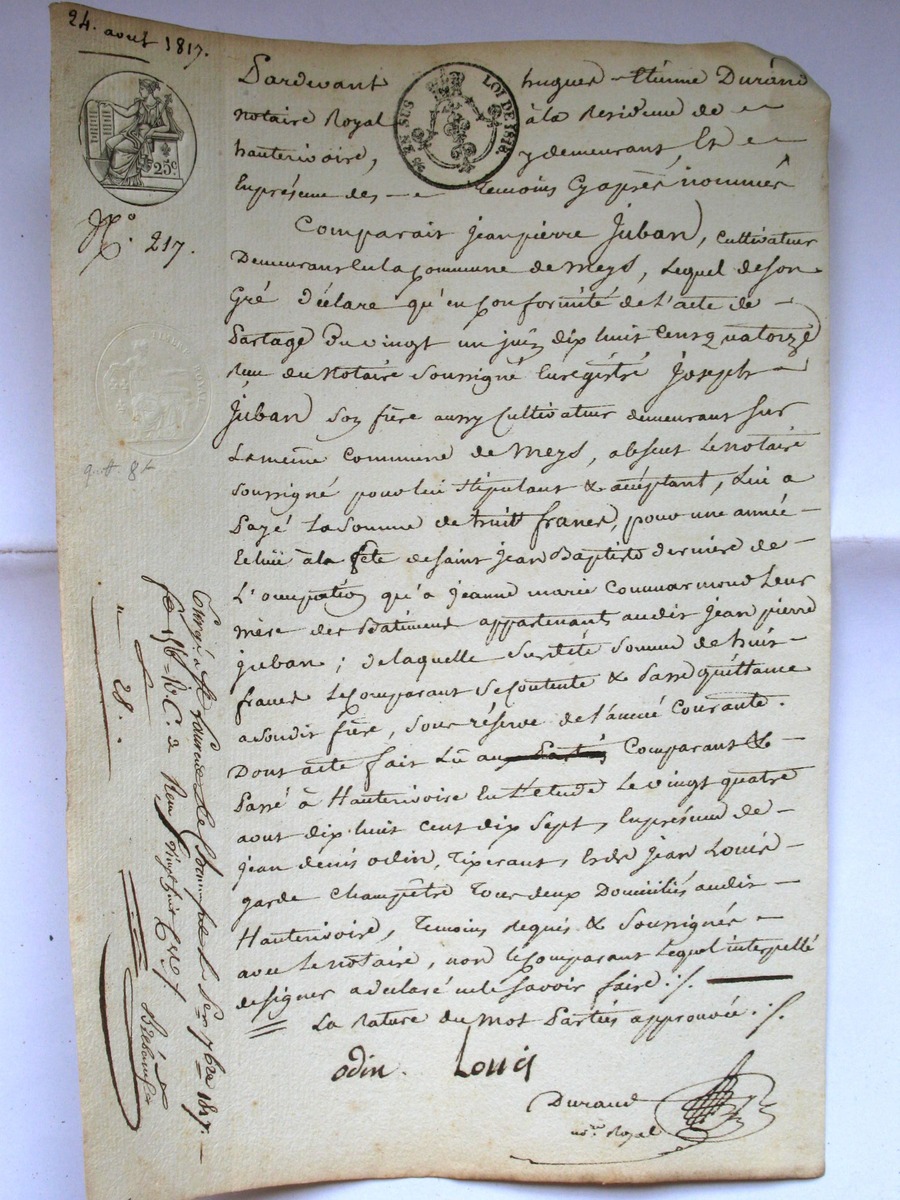 24. aout 1817.
25 Cs EN SUS
LOI DE 1816.
25c
No. 217.
Pardevant hugues-Etienne Durand
notaire Royal à la Residence de
hauterivoire, y demeurant, Et
En présence des temoins Cyaprès nommés
Comparait jeanpierre Juban, Cultivateur
Demeurant En la Commune de meys, Lequel de son
Gré Déclare qu'en Conformité de L'acte de
Partage Du vingt un juin dix huit Cent quatorze
Reçu du Notaire Soussigné Enrégistré Joseph
Juban Son frère aussy Cultivateur demeurant sur
La même Commune de meys, absent Le notaire
Soussigné pour lui Stipulant & acceptant, Lui a
Payé La Somme de huitt francs, pour une année
Echüe à la fete de Saint jean Baptiste dernière de
L'occupation qu'a jeanne marie Commarmond Leur
mère des Batiments appartenant audit jean pierre
juban; de laquelle Susditte Somme de huit
francs Le Comparant Se Contente & Passe quittance
a Sondit frère, Sous réserve de l'année Courante.
Dont acte fait Lû au Partiés Comparant &
Passé à Hauterivoire En L'etude Le vingt quatre
aout dix huit cent dix Sept, En présence de
jean denis odin, Tixerant, & de jean Louis
garde Champêtre Tous deux Domiciliés audit
Hauterivoire, Temoins Requis & Soussignés
avec Le notaire, non Le Comparant Lequel interpellé
de signer a declaré ne Le Savoir faire ./.
La rature du mot Partiés approuvée ./.
odin. Louis
Durand
nre Royal
Enregistré St Laurent de Chamousset Le 1er 7bre 1817.
fo 156 V. C. 2 Reçu vingt huit Cmes
28.